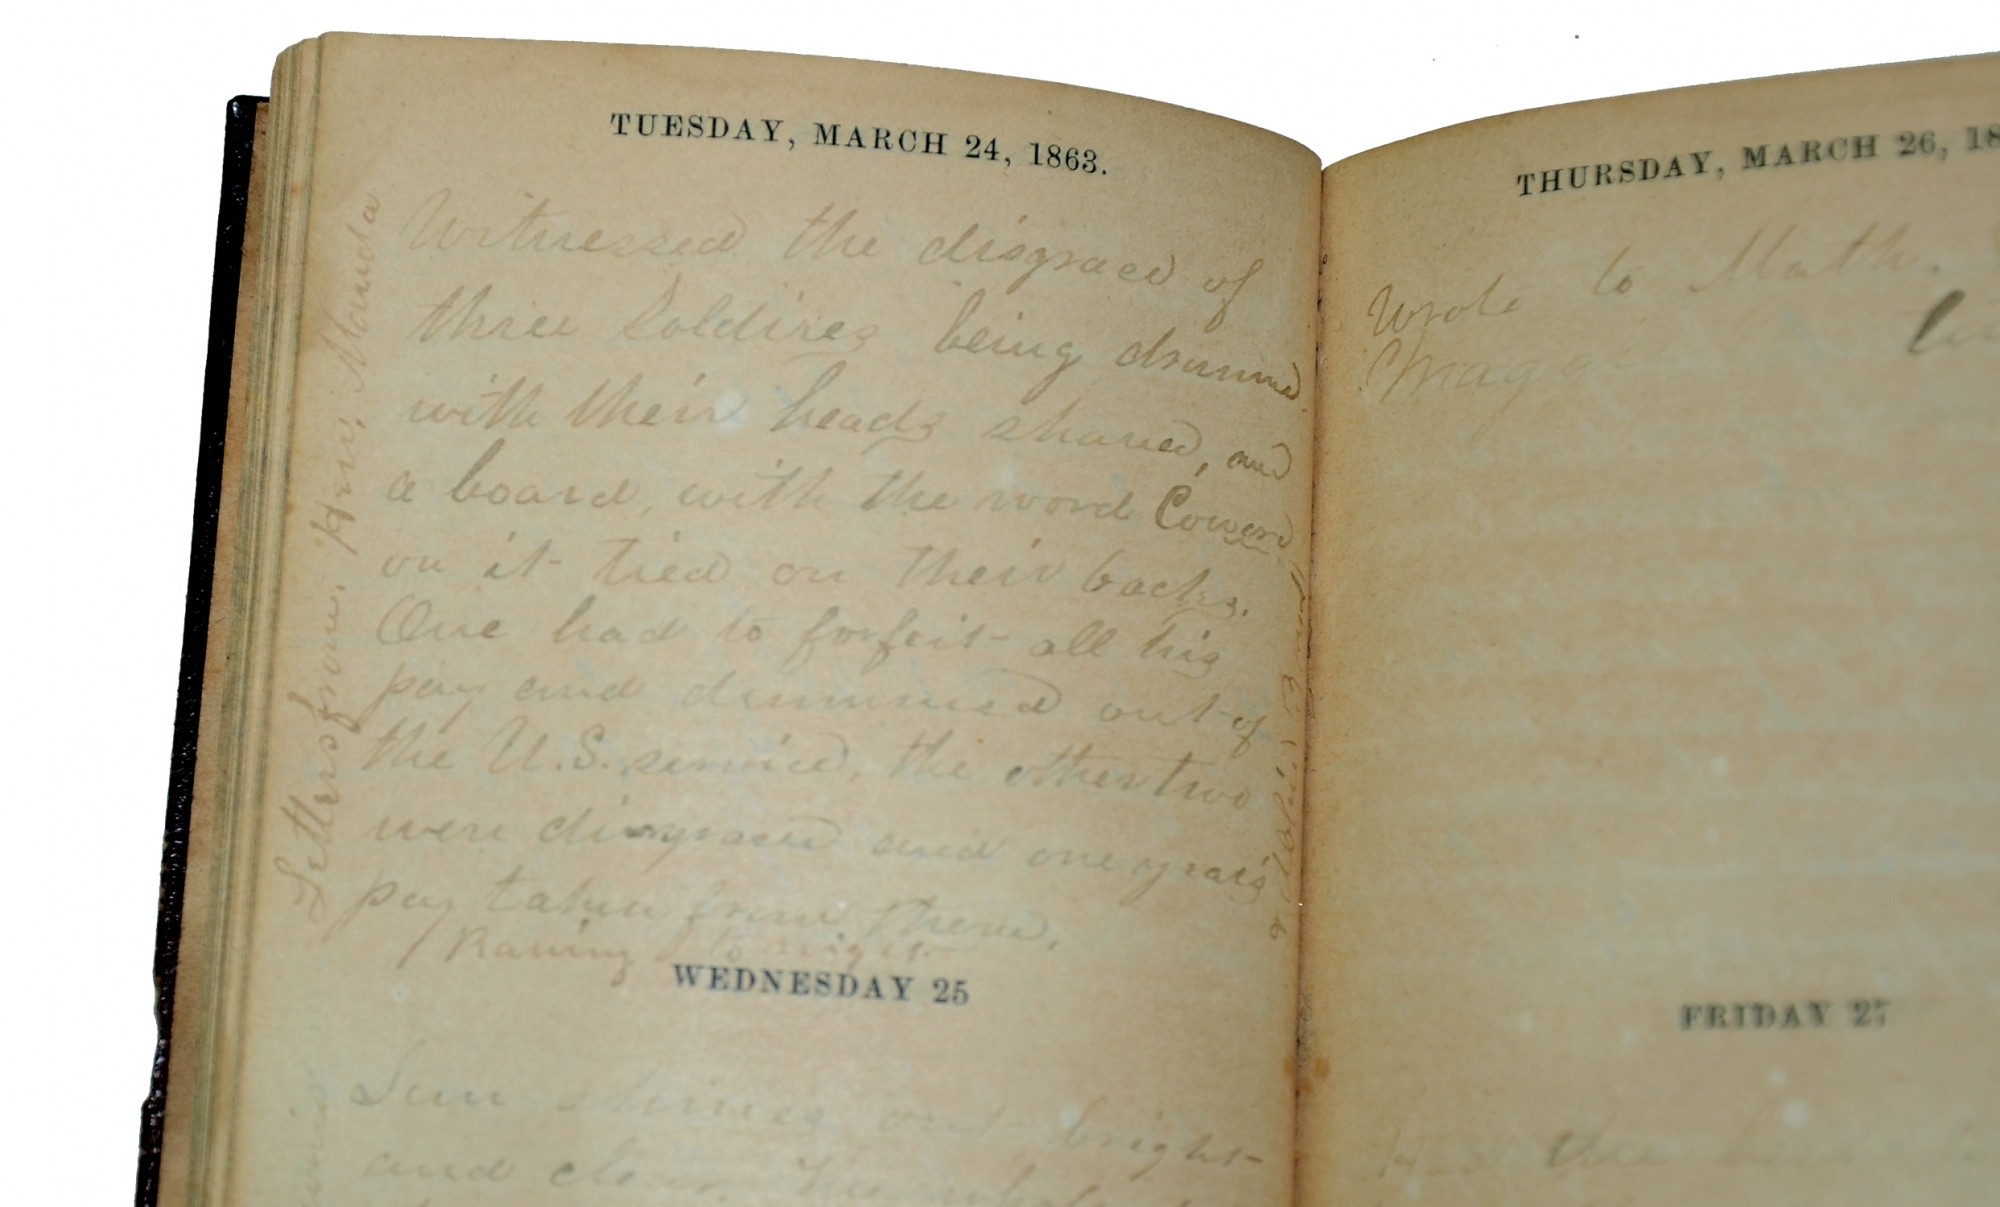 TUESDAY, MARCH 24, 1863.
Witnessed the disgraced of
three Soldires being drummed
with their heads shaved, and
a board, with the word Coward
on it tied on their backs.
One had to forfeit all his
pay and drummed out of
the U.S. service, the other two
were disgraced and one year's
pay taken from them.
Raining to night
Letters from
WEDNESDAY 25
Sun shines out bright
and clear. The
THURSDAY, MARCH 26, 18
Wrote to Math.
Magg
FRIDAY 27